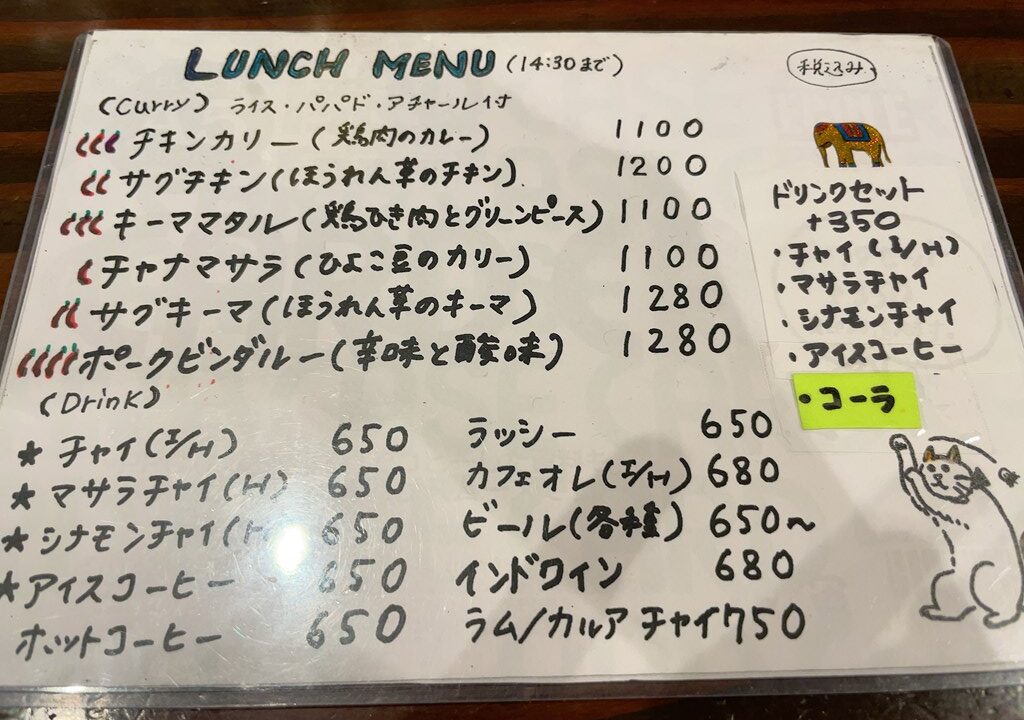 LUNCH MENU (14:30まで)
税込み
(Curry) ライス・パパド・アチャール付
チキンカリー(鶏肉のカレー) 1100
サグチキン(ほうれん草のチキン) 1200
キーママタル(鶏ひき肉とグリーンピース) 1100
チャナマサラ(ひよこ豆のカリー) 1100
サグキーマ(ほうれん草のキーマ) 1280
ポークビンダルー(辛味と酸味) 1280
ドリンクセット
+350
・チャイ(I/H)
・マサラチャイ
・シナモンチャイ
・アイスコーヒー
・コーラ
(Drink)
★ チャイ(I/H) 650
★ マサラチャイ(H) 650
★ シナモンチャイ( 650
★ アイスコーヒー 650
ホットコーヒー 650
ラッシー 650
カフェオレ(I/H) 680
ビール(各種) 650〜
インドワイン 680
ラム/カルアチャイ 750